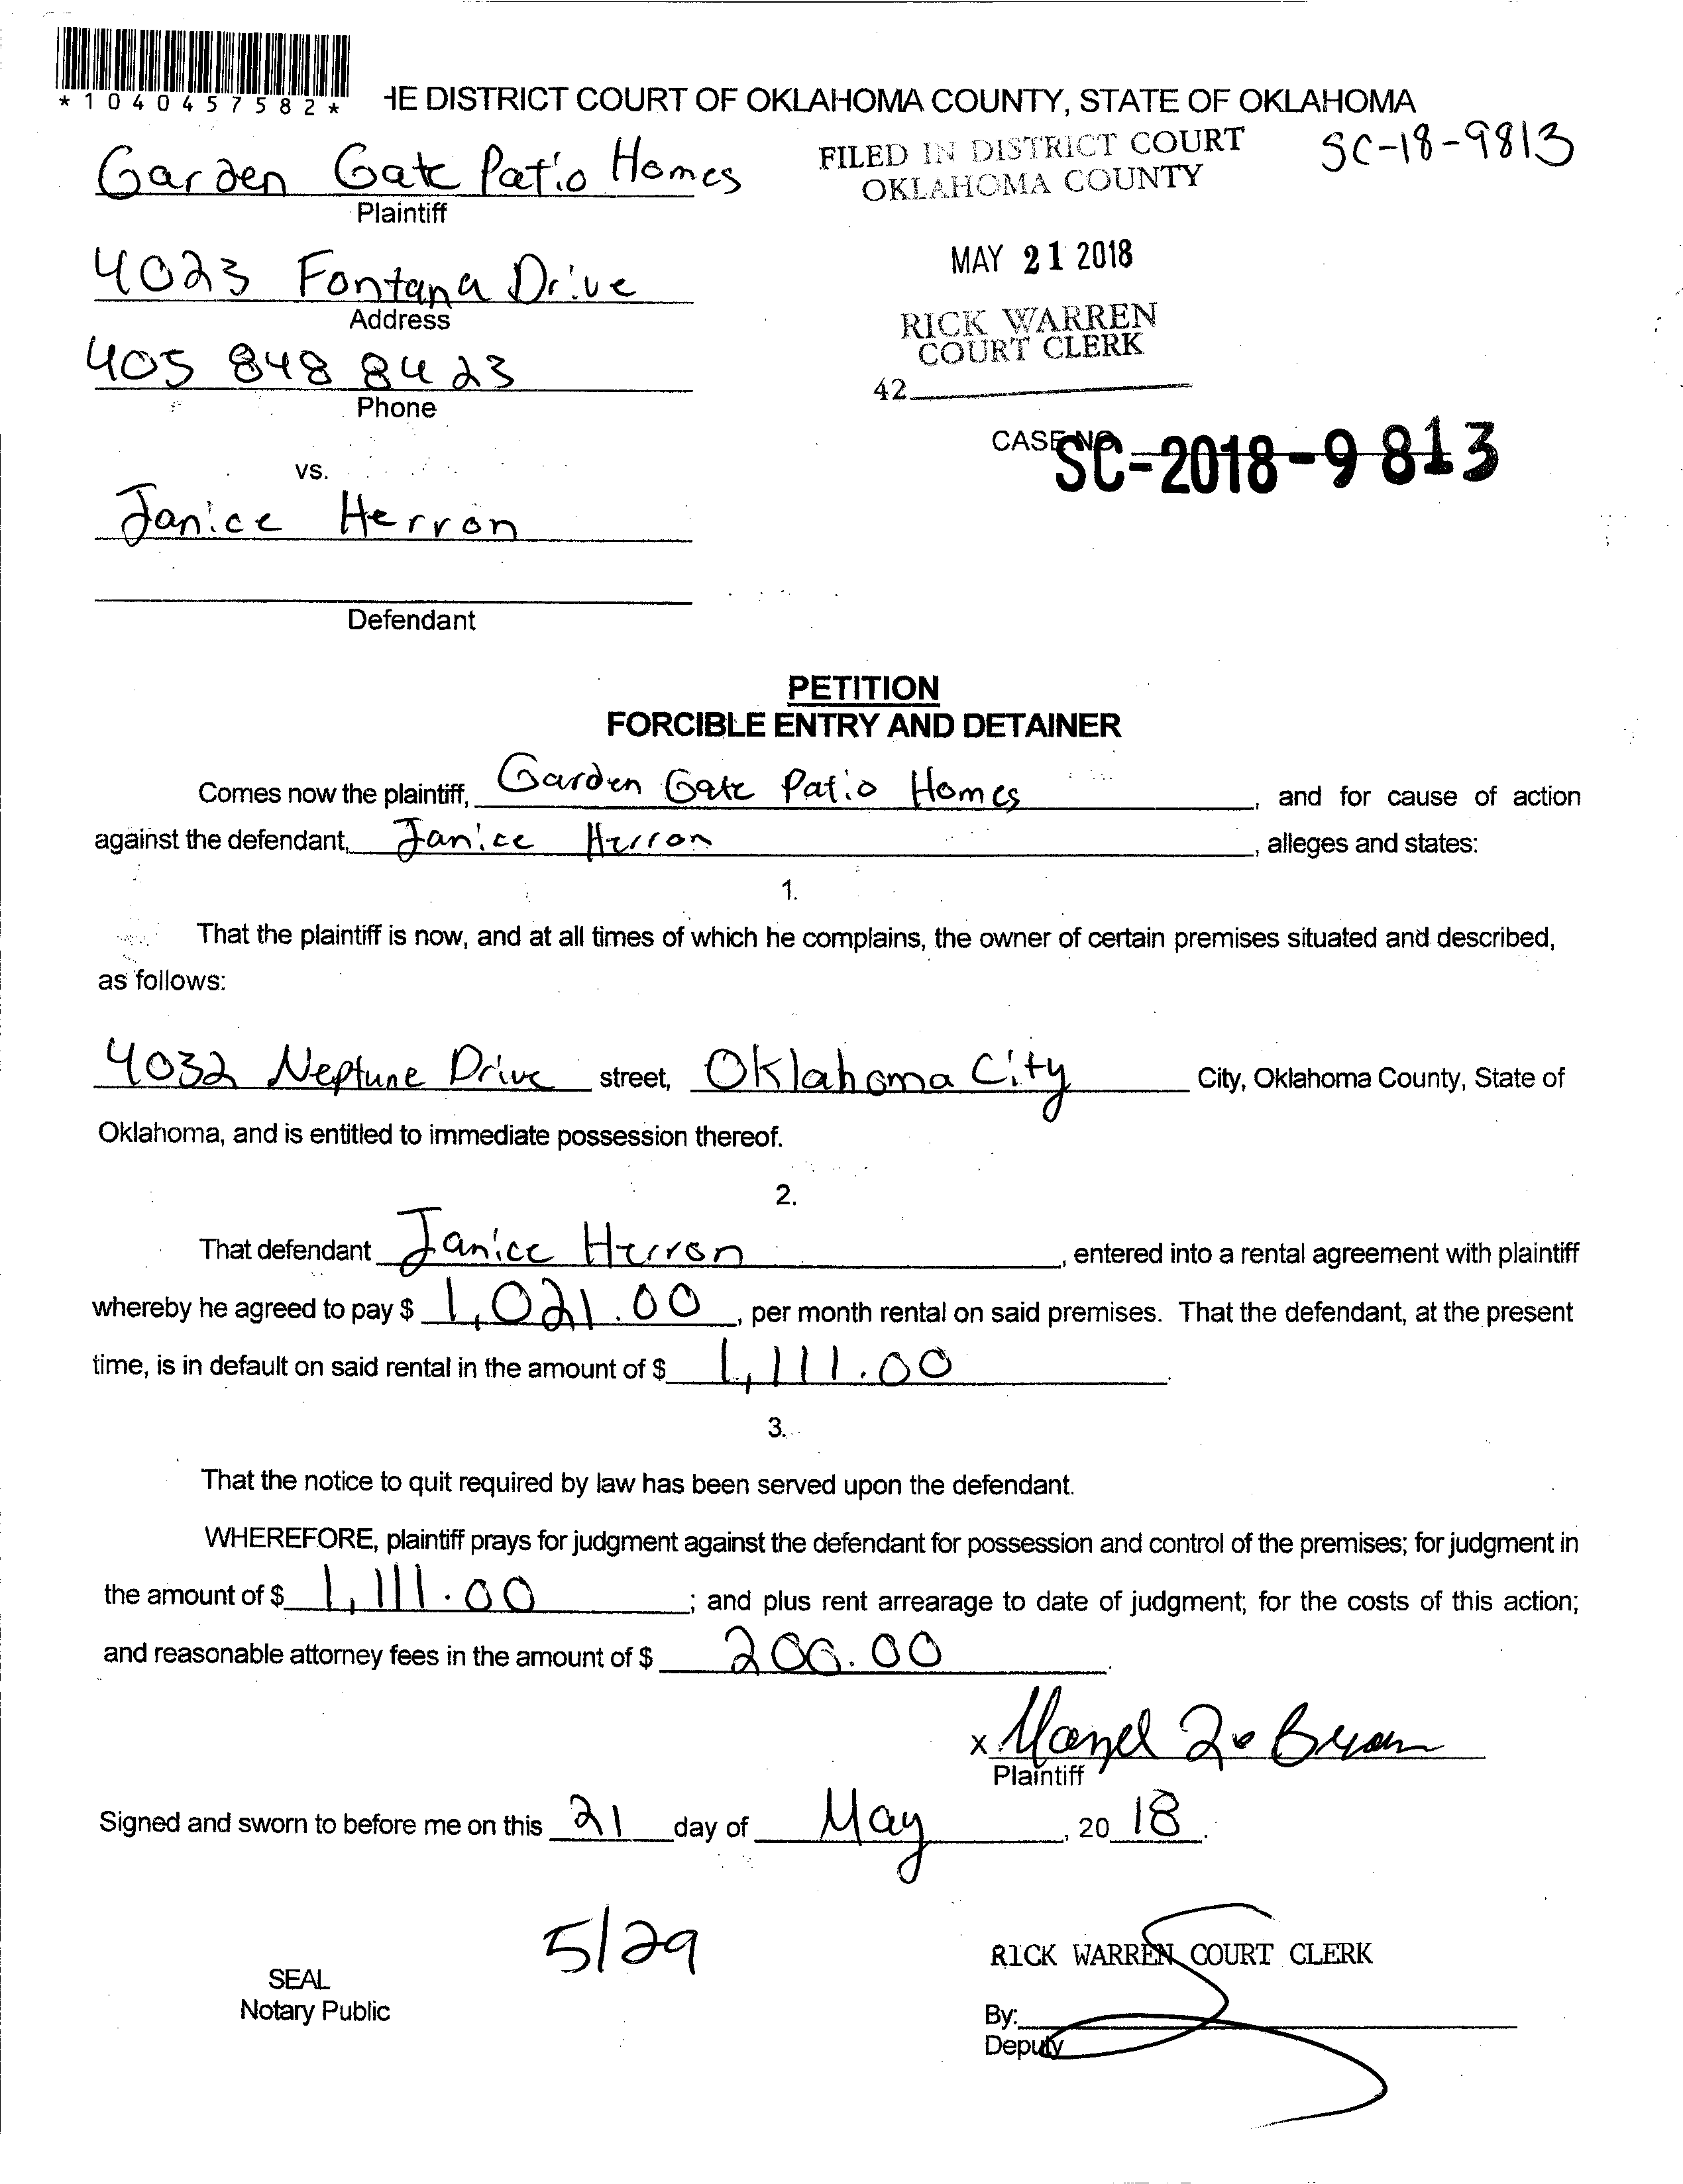 *1040457582*
HE DISTRICT COURT OF OKLAHOMA COUNTY, STATE OF OKLAHOMA
Garden Gate Patio Homes
Plaintiff
FILED IN DISTRICT COURT
OKLAHOMA COUNTY
SC-18-9813
4023 Fontana Drive
Address
MAY 21 2018
405 848 8423
Phone
RICK WARREN
COURT CLERK
42
CASE NO.
SC-2018-9813
vs.
Janice Herron
Defendant
PETITION
FORCIBLE ENTRY AND DETAINER
Comes now the plaintiff, Garden Gate Patio Homes, and for cause of action
against the defendant, Janice Herron, alleges and states:
1.
That the plaintiff is now, and at all times of which he complains, the owner of certain premises situated and described,
as follows:
4032 Neptune Drive street, Oklahoma City City, Oklahoma County, State of
Oklahoma, and is entitled to immediate possession thereof.
2.
That defendant Janice Herron, entered into a rental agreement with plaintiff
whereby he agreed to pay $ 1,021.00, per month rental on said premises. That the defendant, at the present
time, is in default on said rental in the amount of $ 1,111.00.
3.
That the notice to quit required by law has been served upon the defendant.
WHEREFORE, plaintiff prays for judgment against the defendant for possession and control of the premises; for judgment in
the amount of $ 1,111.00; and plus rent arrearage to date of judgment; for the costs of this action;
and reasonable attorney fees in the amount of $ 200.00.
x
Plaintiff
Signed and sworn to before me on this 21 day of May, 20 18.
5/29
SEAL
Notary Public
RICK WARREN COURT CLERK
By:
Deputy